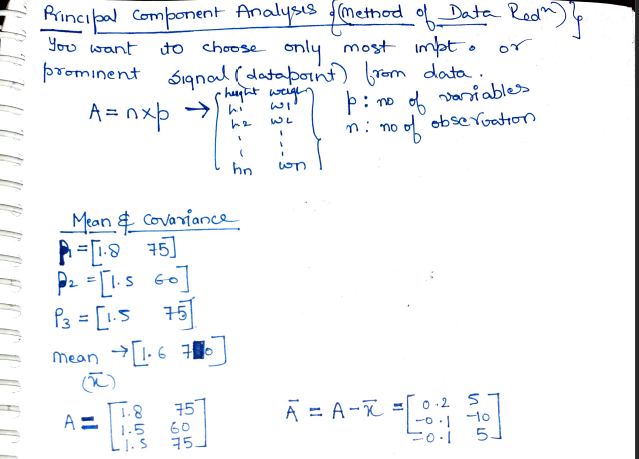 Principal Component Analysis {(Method of Data Redⁿ)}
You want to choose only most impt. or
prominent signal (datapoint) from data.
A = n×p → { height weight
h1 w1
h2 w2
hn wn }
p : no of variables
n : no of observation
Mean & Covariance
P1 = [1.8 75]
P2 = [1.5 60]
P3 = [1.5 75]
mean → [1.6 70]
(x̄)
A = [1.8 75
1.5 60
1.5 75]
Ā = A - x̄ = [0.2 5
-0.1 -10
-0.1 5]